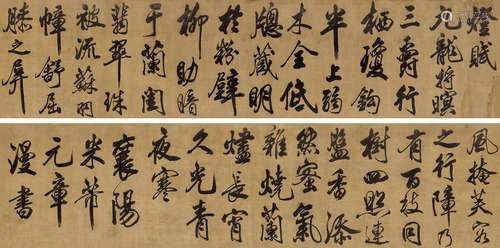 燈賦
九龍將暝
三爵行
栖瓊鉤
半上弱
木全低
牕藏明
於粉壁
柳助暗
于蘭閨
翡翠珠
被流蘇羽
幛舒屈
膝之屏
風掩芙容
之行障乃
有百枝同
樹四照連
盤香添
然蜜氣
雜燒蘭
燼長宵
久光青
夜寒
襄陽
米芾
元章
漫書